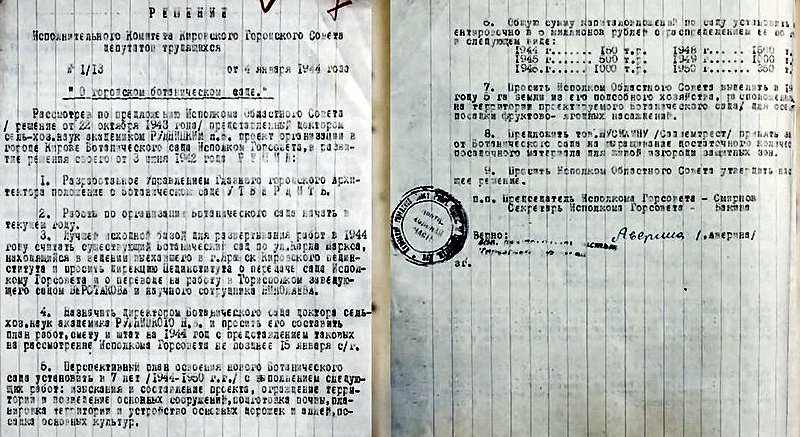 РЕШЕНИЕ
Исполнительного Комитета Кировского Горсовского Совета
депутатов трудящихся
№ 1/13 от 4 января 1944 года
"О городском ботаническом саде."
Рассмотрев по предложению Исполкома Областного Совета
/решение от 22 октября 1943 года/ представленный доктором
сель-хоз.наук академиком РУДНИЦКИМ Н.В. проект организации в
городе Кирове Ботанического сада Исполком Горсовета, в разви-
тие решения своего от 3 июня 1942 года РЕШИЛ:
1. Разработанное Управлением Главного городского Архи-
тектора положение о ботаническом саде УТВЕРДИТЬ.
2. Работы по организации Ботанического сада начать в
текущем году.
3. Лучшей исходной базой для развертывания работ в 1944
году считать существующий Ботанический сад по ул.Карла Маркса,
находящийся в ведении выехавшего в г.Яранск Кировского пединс-
ститута и просить дирекцию Пединститута о передаче сада Испол-
кому Горсовета и о переводе на работу в Горисполком заведую-
щего садом ВЕРСТАКОВА и научного сотрудника НИКОЛАЕВА.
4. Назначить директором Ботанического сада доктора сель-
хоз.наук академика РУДНИЦКОГО Н.В. и просить его составить
план работ,смету и штат на 1944 год с представлением таковых
на рассмотрение Исполкома Горсовета не позднее 15 января с/г.
5. Перспективный план освоения нового Ботанического
сада установить в 7 лет /1944-1950 г.г./ с выполнением следую-
щих работ: изыскания и составление проекта, ограждение терри-
тории и возведение основных сооружений,подготовка почвы,пла-
нировка территории и устройство основных дорожек и аллей,по-
садка основных культур.
6. Общую сумму капиталовложений по саду установить
ентировочно в 5 миллионов рублей с распределением ее по го
в следующем виде:
1944 г...... 150 т.р. 1948 г..... 1500 т.
1945 г...... 500 т.р. 1949 г..... т.
1946 г...... 1000 т.р. 1950 г..... 350 т.
7. Просить Исполком Областного Совета выделить в 19
году га земли из его подсобного хозяйства, расположенн
на территории проектируемого Ботанического сада/ для ос
посадки фруктово-ягодных насаждений.
8. Предложить тов. /Саdземтрест/ принять за
от Ботанического сада на выращивание достаточного количес
посадочного материала для живой изгороди защитных зон.
9. Просить Исполком Областного Совета утвердить нас
щее решение.
п.п. Председатель Исполкома Горсовета - Смирнов
Секретарь Исполкома Горсовета - Бакина
Верно: Аверина /Аверина/
зг.